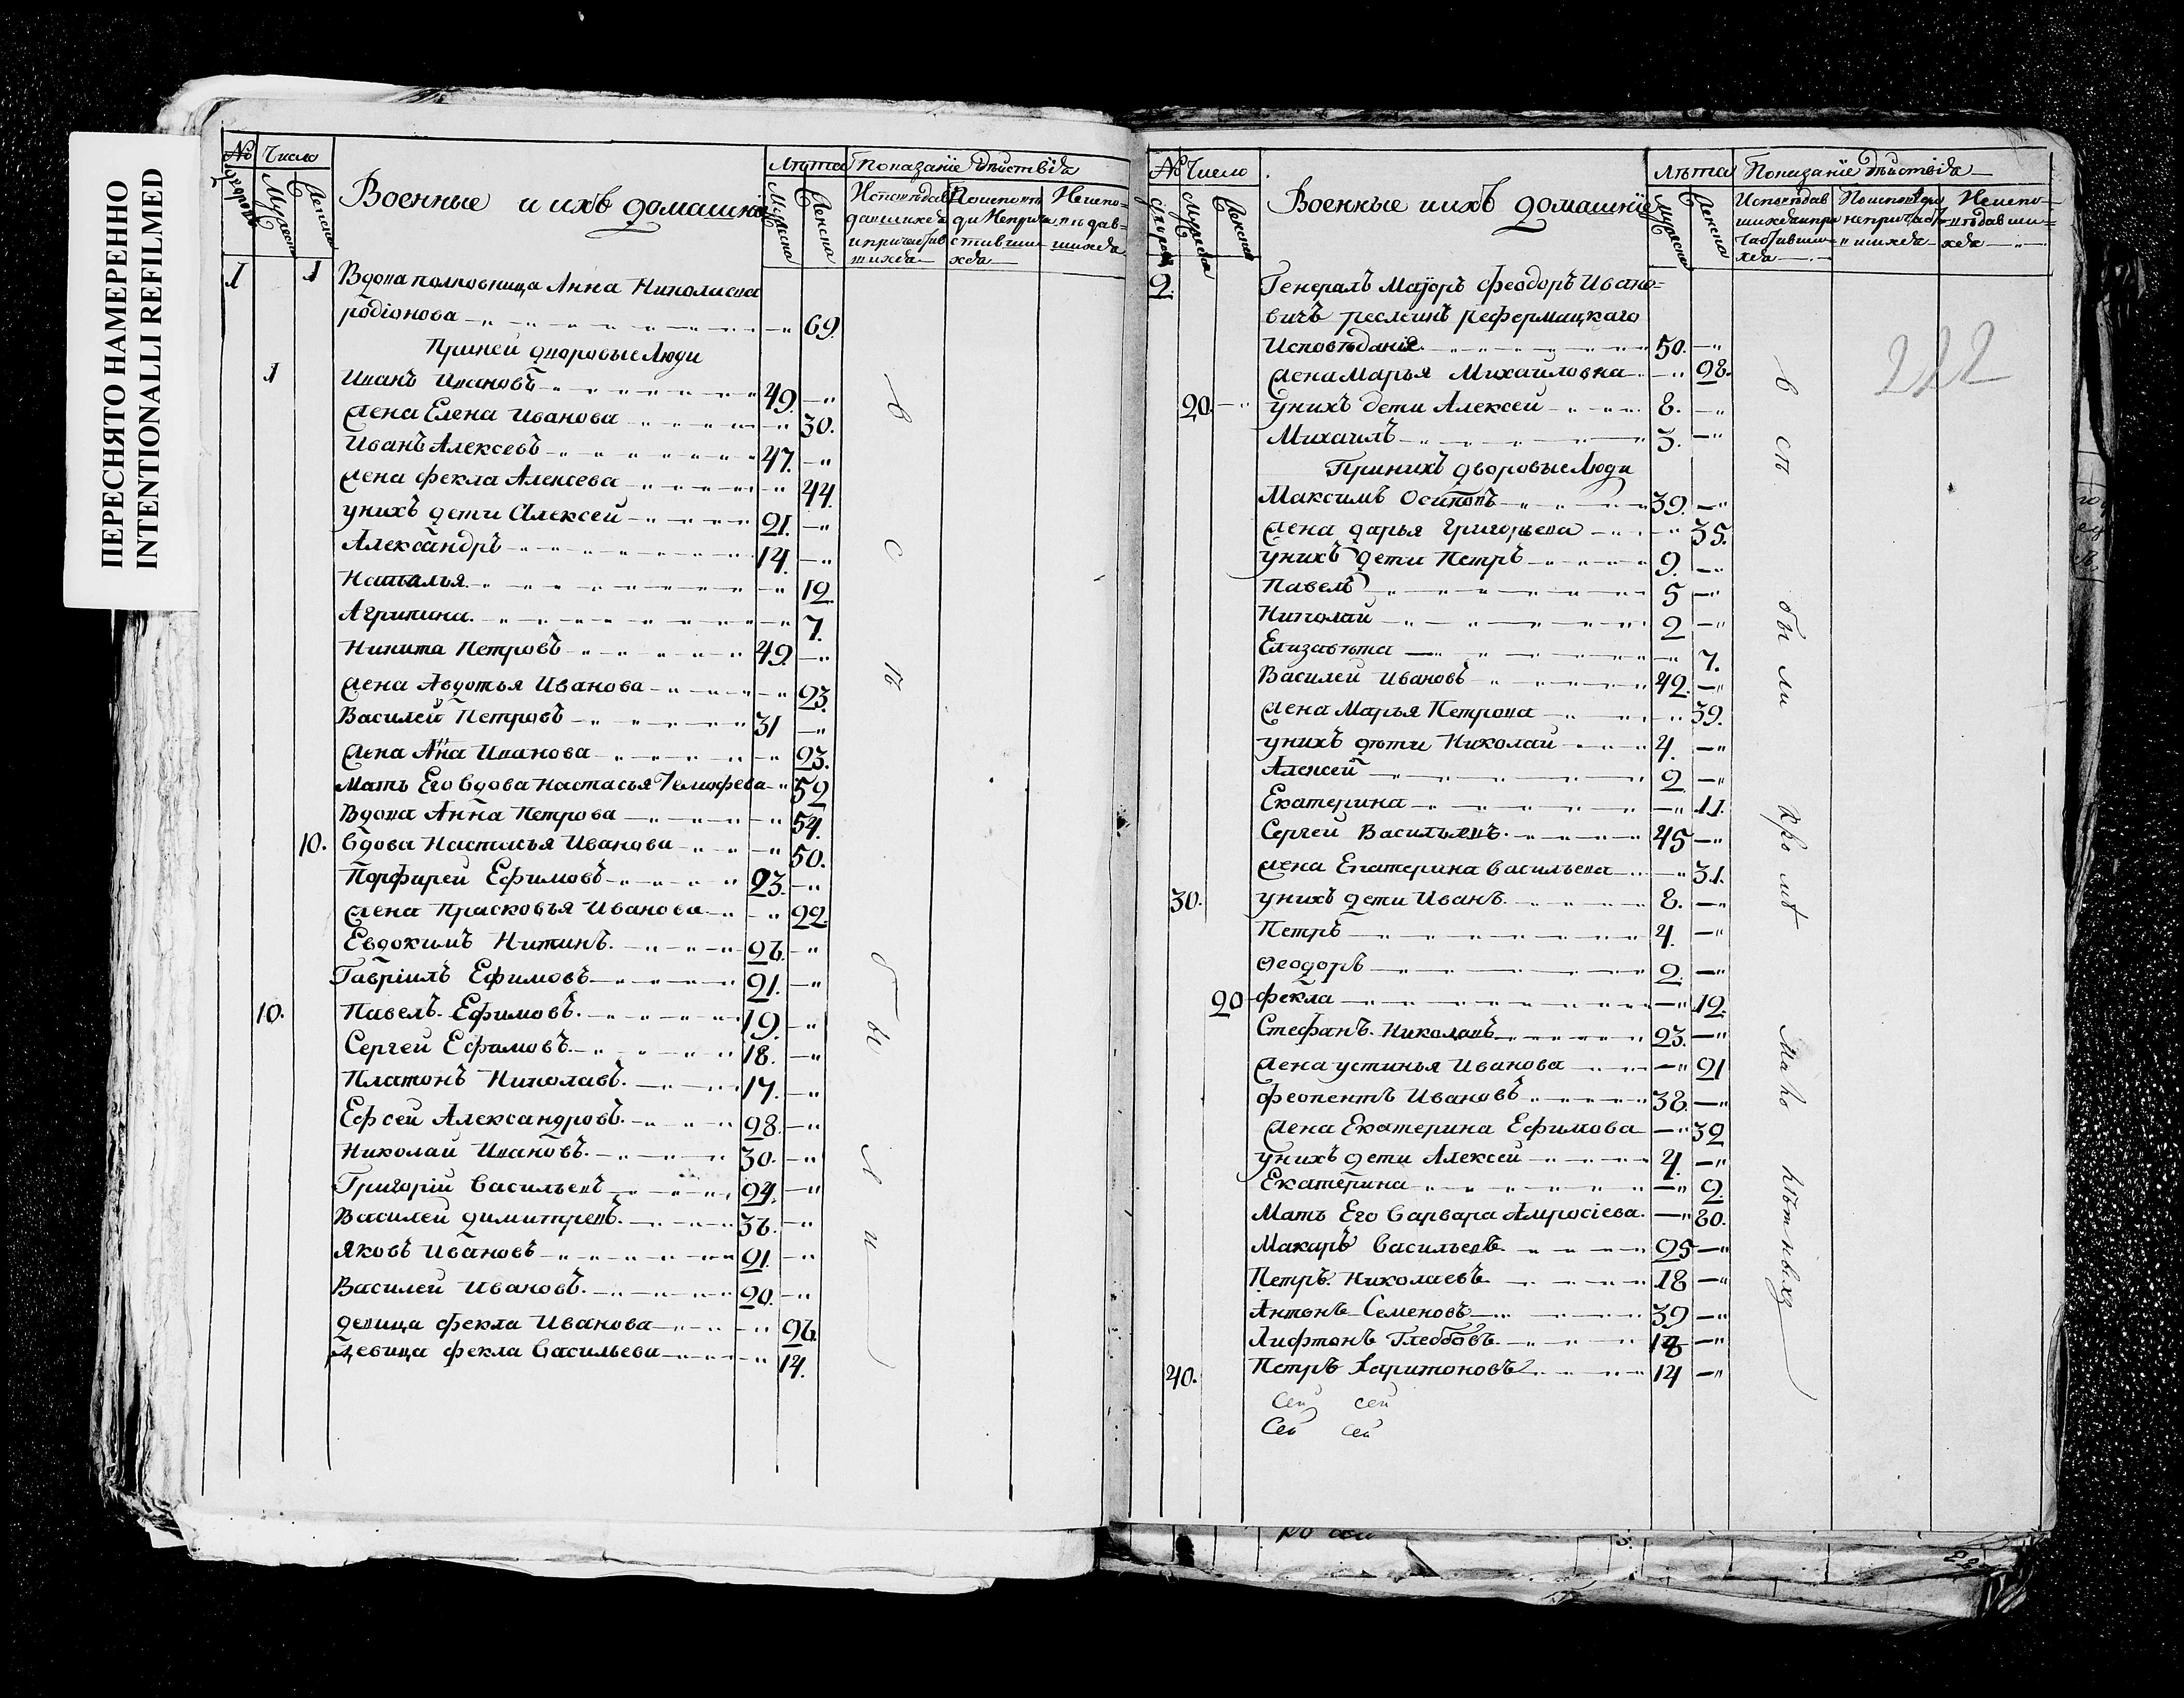 ПЕРЕСНЯТО НАМЕРЕННО
INTENTIONALLI REFILMED
№ Число Военные и ихъ домашнїе Лѣта Показанїе дѣйствїя
1 1 Вдова полковница Анна Николаева
родїонова 69.
При ней дворовые Люди
1 Иванъ Ивановъ 49.
Жена Елена Иванова 30.
Иванъ Алексевъ 47.
Жена Фекла Алексева 44.
у нихъ дети Алексей 21.
Александръ 14.
Наталья 12
Агрипина 7.
Никита Петровъ 49.
Жена Авдотья Иванова 23.
Василей Петровъ 31
Жена Анна Иванова 23.
Мать Его вдова Настасья Темофева 52
Вдова Анна Петрова 54.
10. Вдова Настасья Иванова 50.
Порфирей Ефимовъ 23.
Жена Прасковья Иванова 22.
Евдокимъ Никитинъ 26.
Гаврїилъ Ефимовъ 21.
10. Павелъ Ефимовъ 19.
Сергей Ефимовъ 18.
Платонъ Николавъ 17.
Ефсей Александровъ 28.
Николай Ивановъ 30.
Григорїй Васильевъ 24.
Василей Димитревъ 36.
Яковъ Ивановъ 21.
Василей Ивановъ 20.
девица Фекла Иванова 26
Девица Фекла Васильева 14.
№ Число Военные и ихъ домашнїе Лѣта Показанїе дѣйствїя
2. Генералъ Маїоръ Феодоръ Ивано=
вичъ реслеинъ рефермацкаго
Исповѣданїя 50.
Жена Марья Михаиловна 28.
20. у нихъ дети Алексей 8.
Михаилъ 3.
При нихъ дворовые Люди
Максимъ Осиповъ 39.
Жена Дарья Григорьева 35.
у нихъ дети Петръ 9.
Павелъ 5
Николай 2
Елизавѣта 7.
Василей Ивановъ 42.
Жена Марья Петрова 39.
у нихъ дѣти Николай 4.
Алексей 2
Екатерина 11.
Сергей Васильевъ 45
Жена Екатерина Васильева 31.
30. у нихъ дети Иванъ 8.
Петръ 4.
Феодоръ 2.
20 Фекла 12.
Стефанъ Николавъ 23.
Жена Устинья Иванова 21
Феопентъ Ивановъ 38.
Жена Екатерина Ефимова 32
у нихъ дети Алексей 4.
Екатерина 2.
Мать Его Варвара Амросїева 80.
Макаръ Васильевъ 25
Петръ Николаевъ 18
Антонъ Семеновъ 39
Лифтонъ Глебовъ
40. Петръ Харитоновъ 14
сей сей
сей сей
были кромѣ малолѣтныхъ
222